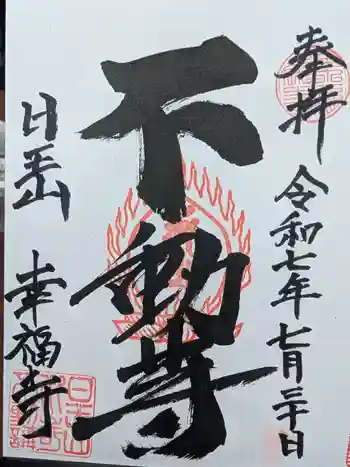 奉拝
令和七年七月二十日
不動尊
日玉山 幸福寺